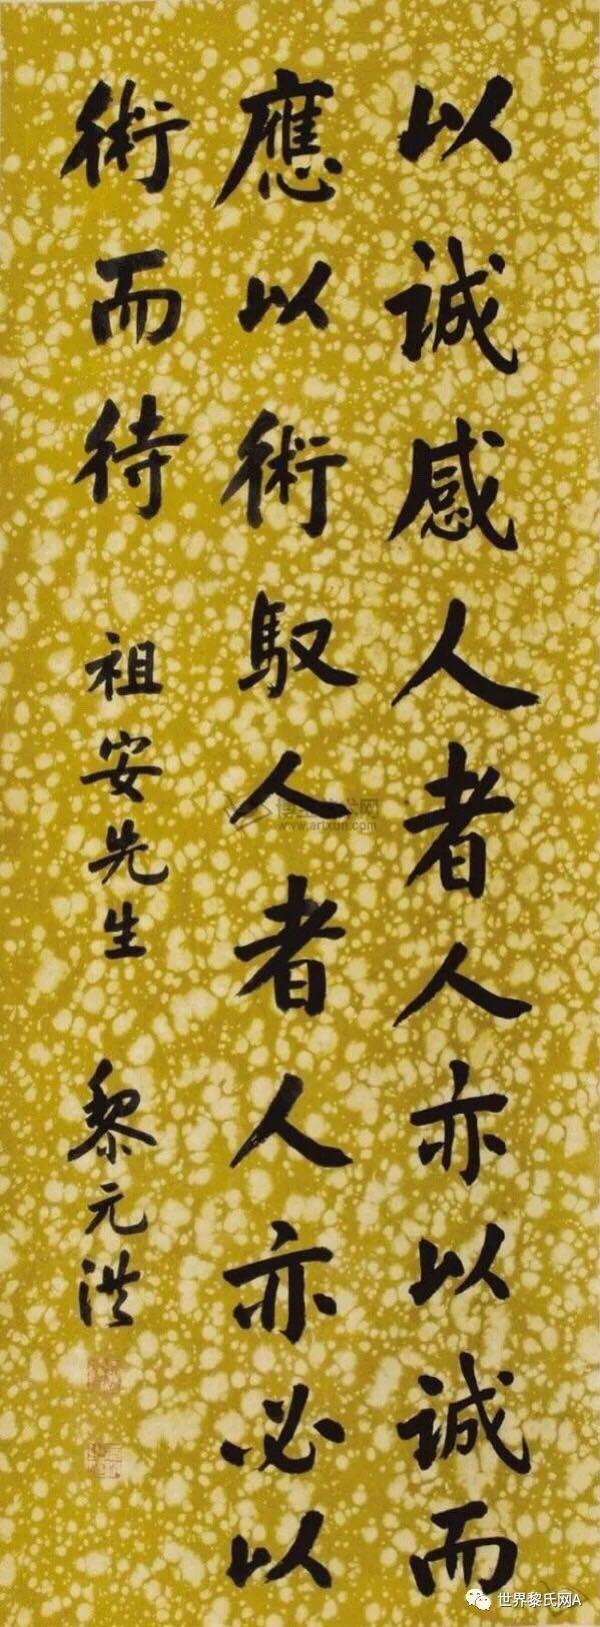 以诚感人者人亦以诚而
應以術馭人者人亦必以
術而待
祖安先生
黎元洪
www.artxun.com
世界黎氏网A